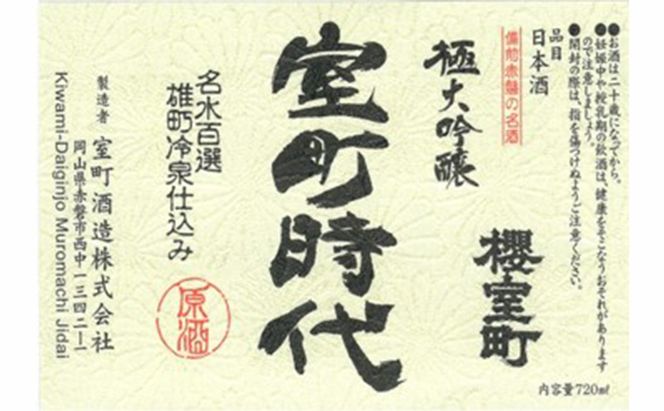 ●お酒は二十歳になってから。
●妊娠中や授乳期の飲酒は、健康をそこなうおそれがあります
ので注意しましょう。
●開封の際は、指を傷つけぬようご注意ください。
品目
日本酒
備前赤盤の名酒
極大吟醸
櫻室町
内容量720㎖
室町時代
名水百選
雄町冷泉仕込み
原酒
製造者 室町酒造株式会社
岡山県赤磐市西中一三四二ー一
Kiwami-Daiginjo Muromachi Jidai